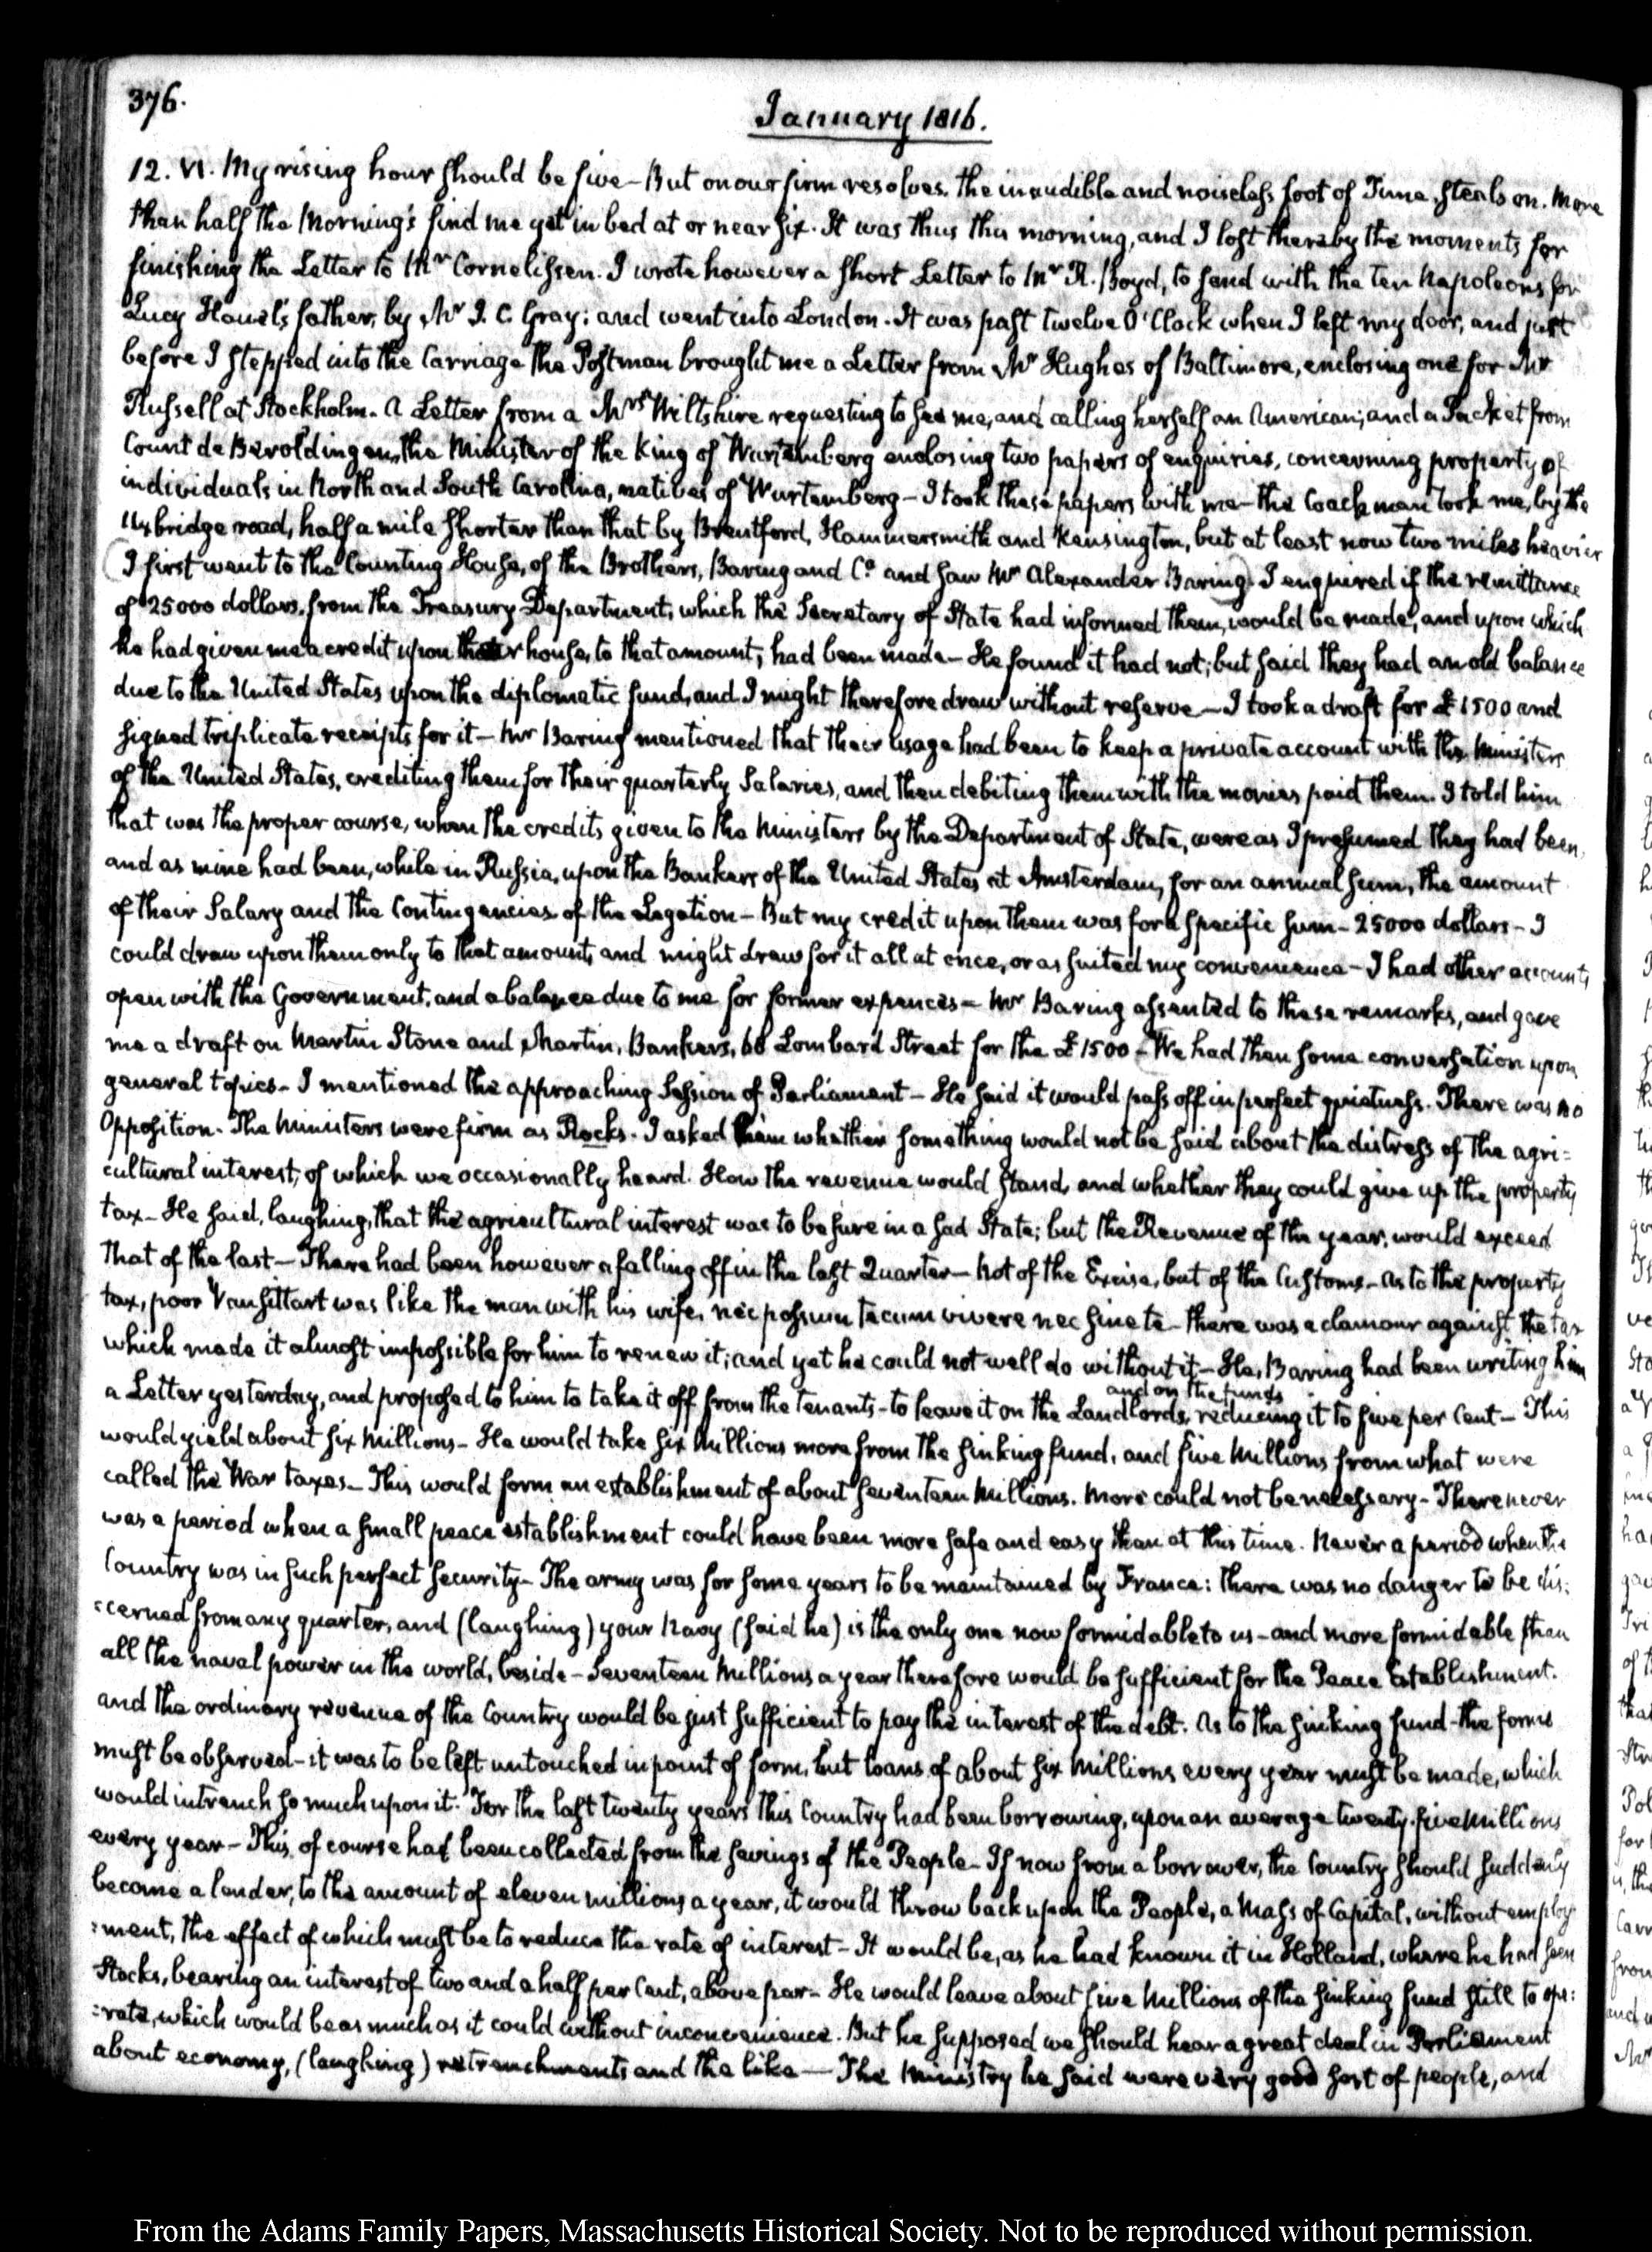 376.
January 1816.
12. VI. My rising hour should be five - But on our firm resolves. the inaudible and noiseless foot of Time, steals on. More
than half the Morning's find me yet in bed at or near six. It was thus this morning, and I lost thereby the moments for
finishing the Letter to Mr Cornelissen. I wrote however a short Letter to Mr R. Boyd, to send with the ten Napoleons for
Lucy Houel's father, by Mr J. C. Gray; and went into London. It was past twelve O'Clock when I left my door, and just
before I stepped into the Carriage the Postman brought me a Letter from Mr Hughes of Baltimore, enclosing one for Mr
Russell at Stockholm. A Letter from a Mrs Wiltshire requesting to see me, and calling herself an American; and a Packet from
Count de Beroldingen, the Minister of the King of Wurtemberg enclosing two papers of enquiries, concerning property of
individuals in North and South Carolina, natives of Wurtemberg - I took these papers with me - the Coachman took me, by the
Uxbridge road, half a mile shorter than that by Brentford, Hammersmith and Kensington, but at least now two miles heavier
I first went to the Counting House, of the Brothers, Baring and Co and saw Mr Alexander Baring. I enquired if the remittance
of 25000 dollars, from the Treasury Department, which the Secretary of State had informed them, would be made, and upon which
he had given me a credit upon their house, to that amount, had been made - He found it had not; but said they had an old balance
due to the United States upon the diplomatic fund, and I might therefore draw without reserve - I took a draft for £1500 and
signed triplicate receipts for it - Mr Baring mentioned that their usage had been to keep a private account with the Ministers
of the United States, crediting them for their quarterly Salaries, and then debiting them with the monies paid them. I told him
that was the proper course, when the credits given to the Ministers by the Department of State, were as I presumed they had been,
and as mine had been, while in Russia, upon the Bankers of the United States at Amsterdam, for an annual sum, the amount
of their Salary and the Contingencies of the Legation - But my credit upon them was for a specific sum - 25000 dollars - I
could draw upon them only to that amount, and might draw for it all at once, or as suited my convenience - I had other accounts
open with the Government, and a balance due to me for former expences - Mr Baring assented to these remarks, and gave
me a draft on Martin Stone and Martin, Bankers, 68 Lombard Street for the £1500 - We had then some conversation upon
general topics - I mentioned the approaching Session of Parliament - He said it would pass off in perfect quietness. There was no
Opposition. The Ministers were firm as Rocks. I asked him whether something would not be said about the distress of the agri=
cultural interest, of which we occasionally heard. How the revenue would stand, and whether they could give up the property
tax - He said, laughing, that the agricultural interest was to be sure in a sad State; but the Revenue of the year, would exceed
that of the last - There had been however a falling off in the last Quarter - not of the Excise, but of the Customs - As to the property
tax, poor Vansittart was like the man with his wife, nec possum tecum vivere nec sine te - there was a clamour against the tax
which made it almost impossible for him to renew it; and yet he could not well do without it - He, Baring had been writing him
a Letter yesterday, and proposed to him to take it off from the tenants - to leave it on the Landlords, and on the funds reducing it to five per Cent - This
would yield about six Millions - He would take six Millions more from the sinking fund, and five Millions from what were
called the War taxes - This would form an establishment of about seventeen Millions. More could not be necessary - There never
was a period when a small peace establishment could have been more safe and easy than at this time. Never a period when the
Country was in such perfect security - The army was for some years to be maintained by France: there was no danger to be dis:
:cerned from any quarter, and (laughing) your Navy (said he) is the only one now formidable to us - and more formidable than
all the naval power in the world, beside - Seventeen Millions a year therefore would be sufficient for the Peace Establishment.
and the ordinary revenue of the Country would be just sufficient to pay the interest of the debt. As to the sinking fund - the forms
must be observed - it was to be left untouched in point of form, but loans of about six Millions every year must be made, which
would intrench so much upon it. For the last twenty years this Country had been borrowing, upon an average twenty-five Millions
every year - This, of course had been collected from the savings of the People - If now from a borrower, the Country should suddenly
become a lender, to the amount of eleven millions a year, it would throw back upon the People, a Mass of Capital, without employ:
:ment, the effect of which must be to reduce the rate of interest - It would be, as he had known it in Holland, where he had seen
Stocks, bearing an interest of two and a half per Cent, above par - He would leave about five Millions of the sinking fund still to ope:
:rate, which would be as much as it could without inconvenience. But he supposed we should hear a great deal in Parliament
about economy, (laughing) retrenchments and the like - The Ministry he said were very good sort of people, and
From the Adams Family Papers, Massachusetts Historical Society. Not to be reproduced without permission.